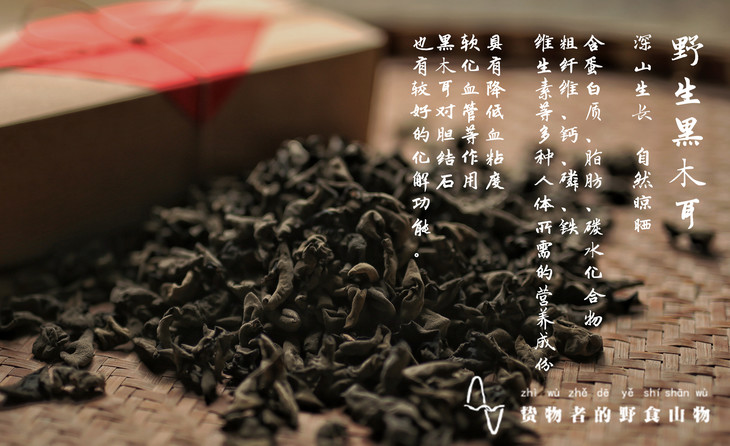 野生黑木耳
深山生长 自然晾晒
含蛋白质、脂肪、碳水化合物
粗纤维、钙、磷、铁
维生素等多种人体所需的营养成份
具有降低血粘度
软化血管等作用
黑木耳对胆结石
也有较好的化解功能。
zhì wù zhě dē yě shí shān wù
货物者的野食山物